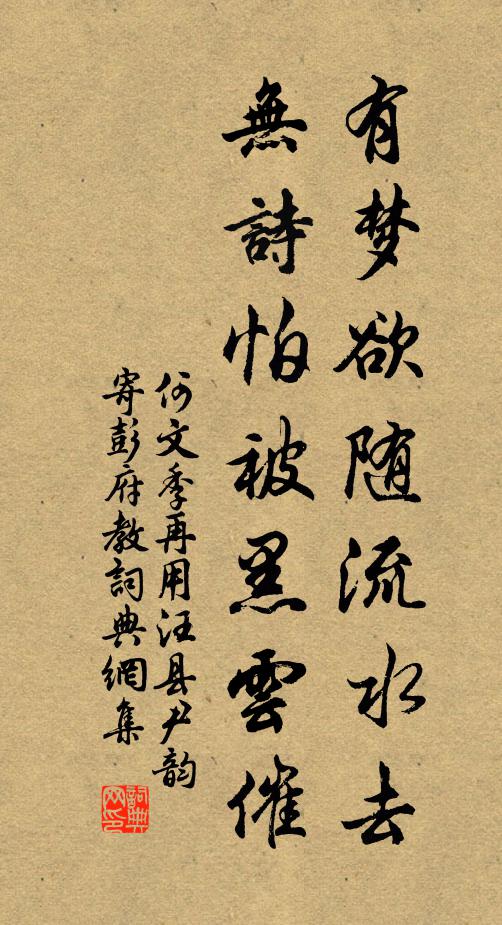 有梦欲随流水去
無詩怕被黑雲催
何文季再用汪县尹韵
寄彭府教詞典網集
詞典网印